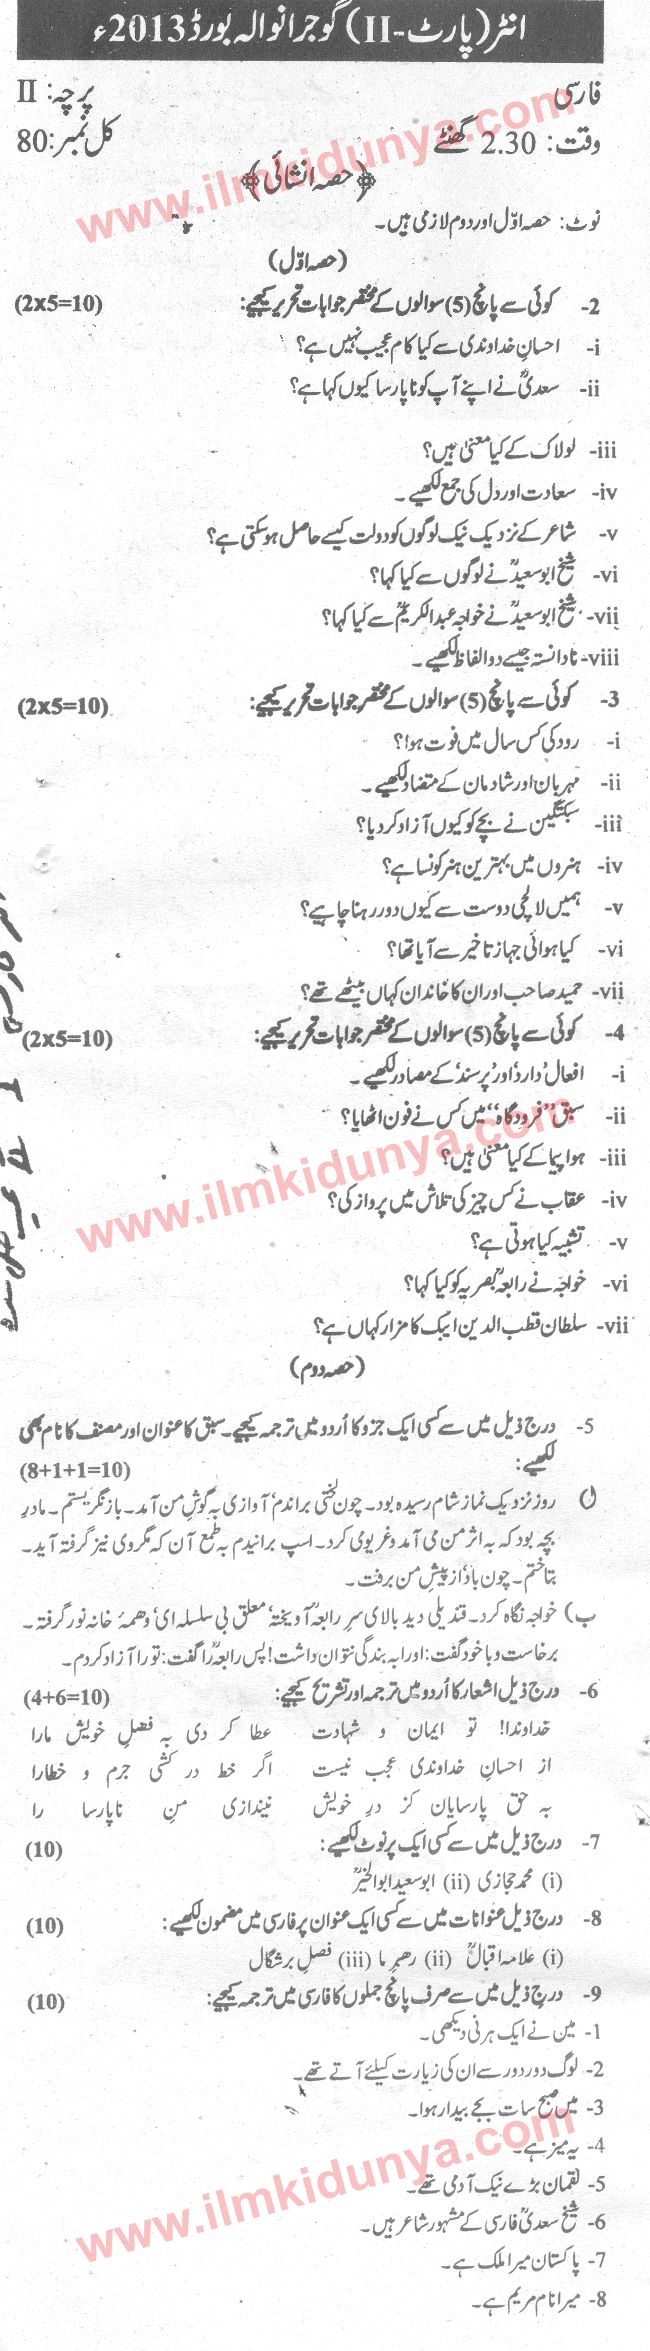 انٹر (پارٹ-II) گوجرانوالہ بورڈ 2013ء
فارسی پرچہ: II
وقت: 2.30 گھنٹے کل نمبر: 80
﴿حصہ انشائی﴾
نوٹ: حصہ اوّل اور دوم لازمی ہیں۔
(حصہ اوّل)
2- کوئی سے پانچ (5) سوالوں کے مختصر جوابات تحریر کیجیے: (2x5=10)
i- احسانِ خداوندی سے کیا کام عجیب نہیں ہے؟
ii- سعدیؒ نے اپنے آپ کو ناپارسا کیوں کہا ہے؟
iii- لولاک کے کیا معنیٰ ہیں؟
iv- سعادت اور دل کی جمع لکھیے۔
v- شاعر کے نزدیک نیک لوگوں کو دولت کیسے حاصل ہو سکتی ہے؟
vi- شیخ ابو سعیدؒ نے لوگوں سے کیا کہا؟
vii- شیخ ابو سعیدؒ نے خواجہ عبدالکریمؒ سے کیا کہا؟
viii- نادانستہ جیسے دو الفاظ لکھیے۔
3- کوئی سے پانچ (5) سوالوں کے مختصر جوابات تحریر کیجیے: (2x5=10)
i- رودکی کس سال میں فوت ہوا؟
ii- مہربان اور شادمان کے متضاد لکھیے۔
iii- سبکتگین نے بچے کو کیوں آزاد کر دیا؟
iv- ہنروں میں بہترین ہنر کونسا ہے؟
v- ہمیں لالچی دوست سے کیوں دور رہنا چاہیے؟
vi- کیا ہوائی جہاز تاخیر سے آیا تھا؟
vii- حمید صاحب اور ان کا خاندان کہاں بیٹھے تھے؟
4- کوئی سے پانچ (5) سوالوں کے مختصر جوابات تحریر کیجیے: (2x5=10)
i- افعال 'دارد' اور 'پرسند' کے مصادر لکھیے۔
ii- سبق "فرودگاہ" میں کس نے فون اٹھایا؟
iii- ہواپیما کے کیا معنیٰ ہیں؟
iv- عقاب نے کس چیز کی تلاش میں پرواز کی؟
v- تشبیہ کیا ہوتی ہے؟
vi- خواجہ نے رابعہ بصریہؒ کو کیا کہا؟
vii- سلطان قطب الدین ایبک کا مزار کہاں ہے؟
(حصہ دوم)
5- درج ذیل میں سے کسی ایک جزو کا اُردو میں ترجمہ کیجیے۔ سبق کا عنوان اور مصنف کا نام بھی
لکھیے: (8+1+1=10)
روز نزدیک نمازِ شام رسیدہ بود۔ چون لختی براندم' آوازی بہ گوشِ من آمد۔ باز نگریستم۔ مادرِ
بچہ بود کہ بہ اثر من می آمد و غریو می کرد۔ اسپ برانیدم بہ طمع آن کہ مگر وی نیز گرفتہ آید۔
بتاختم۔ چون باد' از پیشِ من برفت۔
ب) خواجہ نگاہ کرد۔ قندیلی دید بالای سرِ رابعہؒ آویختہ' معلق بی سلسلہ ای' وہمۂ خانہ نور گرفتہ۔
برخاست و با خود گفت: او را بہ بندگی نتوان داشت! پس رابعہؒ را گفت: تو را آزاد کردم۔
6- درج ذیل اشعار کا اُردو میں ترجمہ اور تشریح کیجیے: (4+6=10)
خداوندا! تو ایمان و شہادت عطا کر دی بہ فضلِ خویش مارا
از احسانِ خداوندی عجب نیست اگر خط در کشی جرم و خطارا
بہ حق پارسایان کز درِ خویش نیندازی منِ ناپارسا را
7- درج ذیل میں سے کسی ایک پر نوٹ لکھیے: (10)
(i) محمد حجازی (ii) ابو سعید ابوالخیرؒ
8- درج ذیل عنوانات میں سے کسی ایک عنوان پر فارسی میں مضمون لکھیے: (10)
(i) علامہ اقبالؒ (ii) رھبرِ ما (iii) فصلِ برشگال
9- درج ذیل میں سے صرف پانچ جملوں کا فارسی میں ترجمہ کیجیے: (10)
1- مین نے ایک ہرنی دیکھی۔
2- لوگ دور دور سے ان کی زیارت کیلئے آتے تھے۔
3- میں صبح سات بجے بیدار ہوا۔
4- یہ میز ہے۔
5- لقمان بڑے نیک آدمی تھے۔
6- شیخ سعدیؒ فارسی کے مشہور شاعر ہیں۔
7- پاکستان میرا ملک ہے۔
8- میرا نام مریم ہے۔
www.ilmkidunya.com
www.ilmkidunya.com
www.ilmkidunya.com